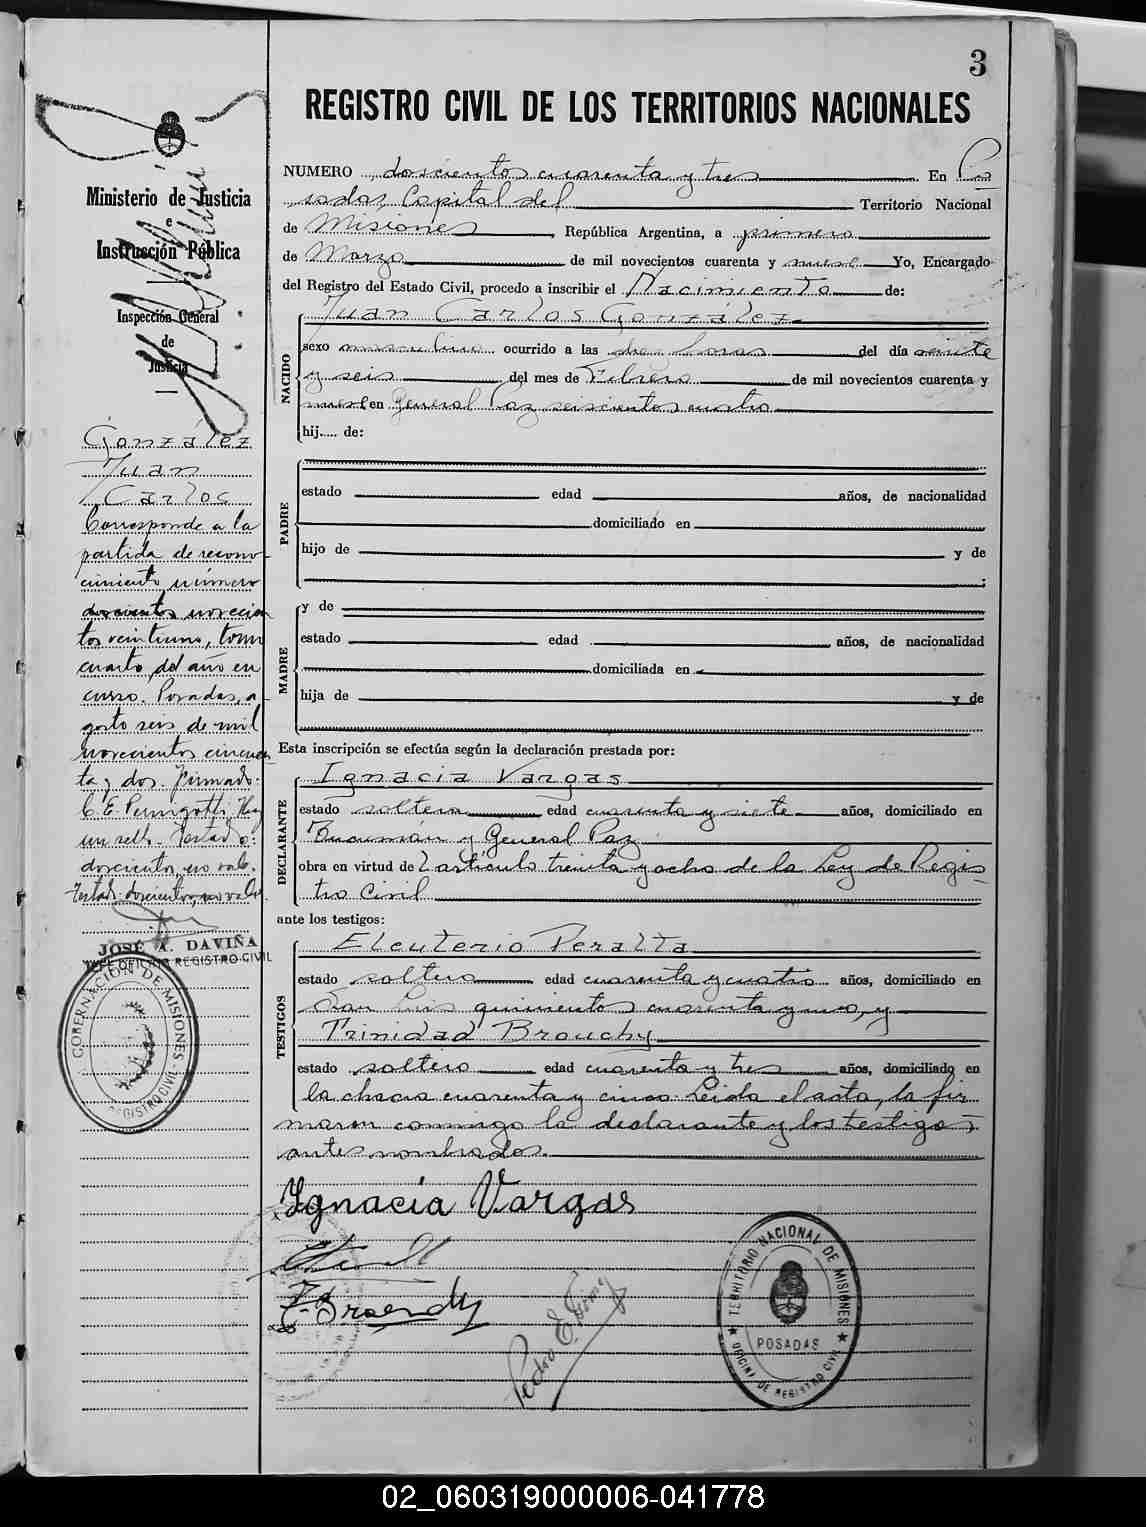 3
REGISTRO CIVIL DE LOS TERRITORIOS NACIONALES
Ministerio de Justicia
e
Instrucción Pública
Inspección General
de
Justicia
González
Juan
Carlos
Corresponde a la
partida de recono-
cimiento número
doscientos novecien
tos veintiuno, tomo
cuarto del año en
curso. Posadas, a-
gosto seis de mil
novecientos cincuen
ta y dos. Firmado:
C. E. Hay
un sello. Testado:
doscientos, no vale.
Testado: doscientos, no vale.
JOSÉ A. DAVIÑA
JEFE OFICINA REGISTRO CIVIL
GOBERNACIÓN DE MISIONES
REGISTRO CIVIL
NUMERO doscientos cuarenta y tres En Po
sadas, Capital del Territorio Nacional
de Misiones, República Argentina, a primero
de Marzo de mil novecientos cuarenta y nueve Yo, Encargado
del Registro del Estado Civil, procedo a inscribir el Nacimiento de:
NACIDO
Juan Carlos González
sexo masculino ocurrido a las horas del día veinte
y seis del mes de Febrero de mil novecientos cuarenta y
nueve en General Paz seiscientos cuatro
hij..... de:
PADRE
estado edad años, de nacionalidad
domiciliado en
hijo de y de
;
MADRE
y de
estado edad años, de nacionalidad
domiciliada en
hija de y de
Esta inscripción se efectúa según la declaración prestada por:
DECLARANTE
Ignacia Vargas
estado soltera edad cuarenta y siete años, domiciliado en
Tucumán y General Paz
obra en virtud de l artículo treinta y ocho de la Ley de Regis-
tro Civil
ante los testigos:
TESTIGOS
Eleuterio Peralta
estado soltero edad cuarenta y cuatro años, domiciliado en
San Luis quinientos cuarenta y uno, y
Trinidad Brouchy
estado soltero edad cuarenta y tres años, domiciliado en
la chacra cuarenta y cinco. Leida el acta, la fir
maron conmigo la declarante y los testigos
antes nombrados.
Ignacia Vargas
Pedro E.
TERRITORIO NACIONAL DE MISIONES
POSADAS
OFICINA DE REGISTRO CIVIL
02_060319000006-041778